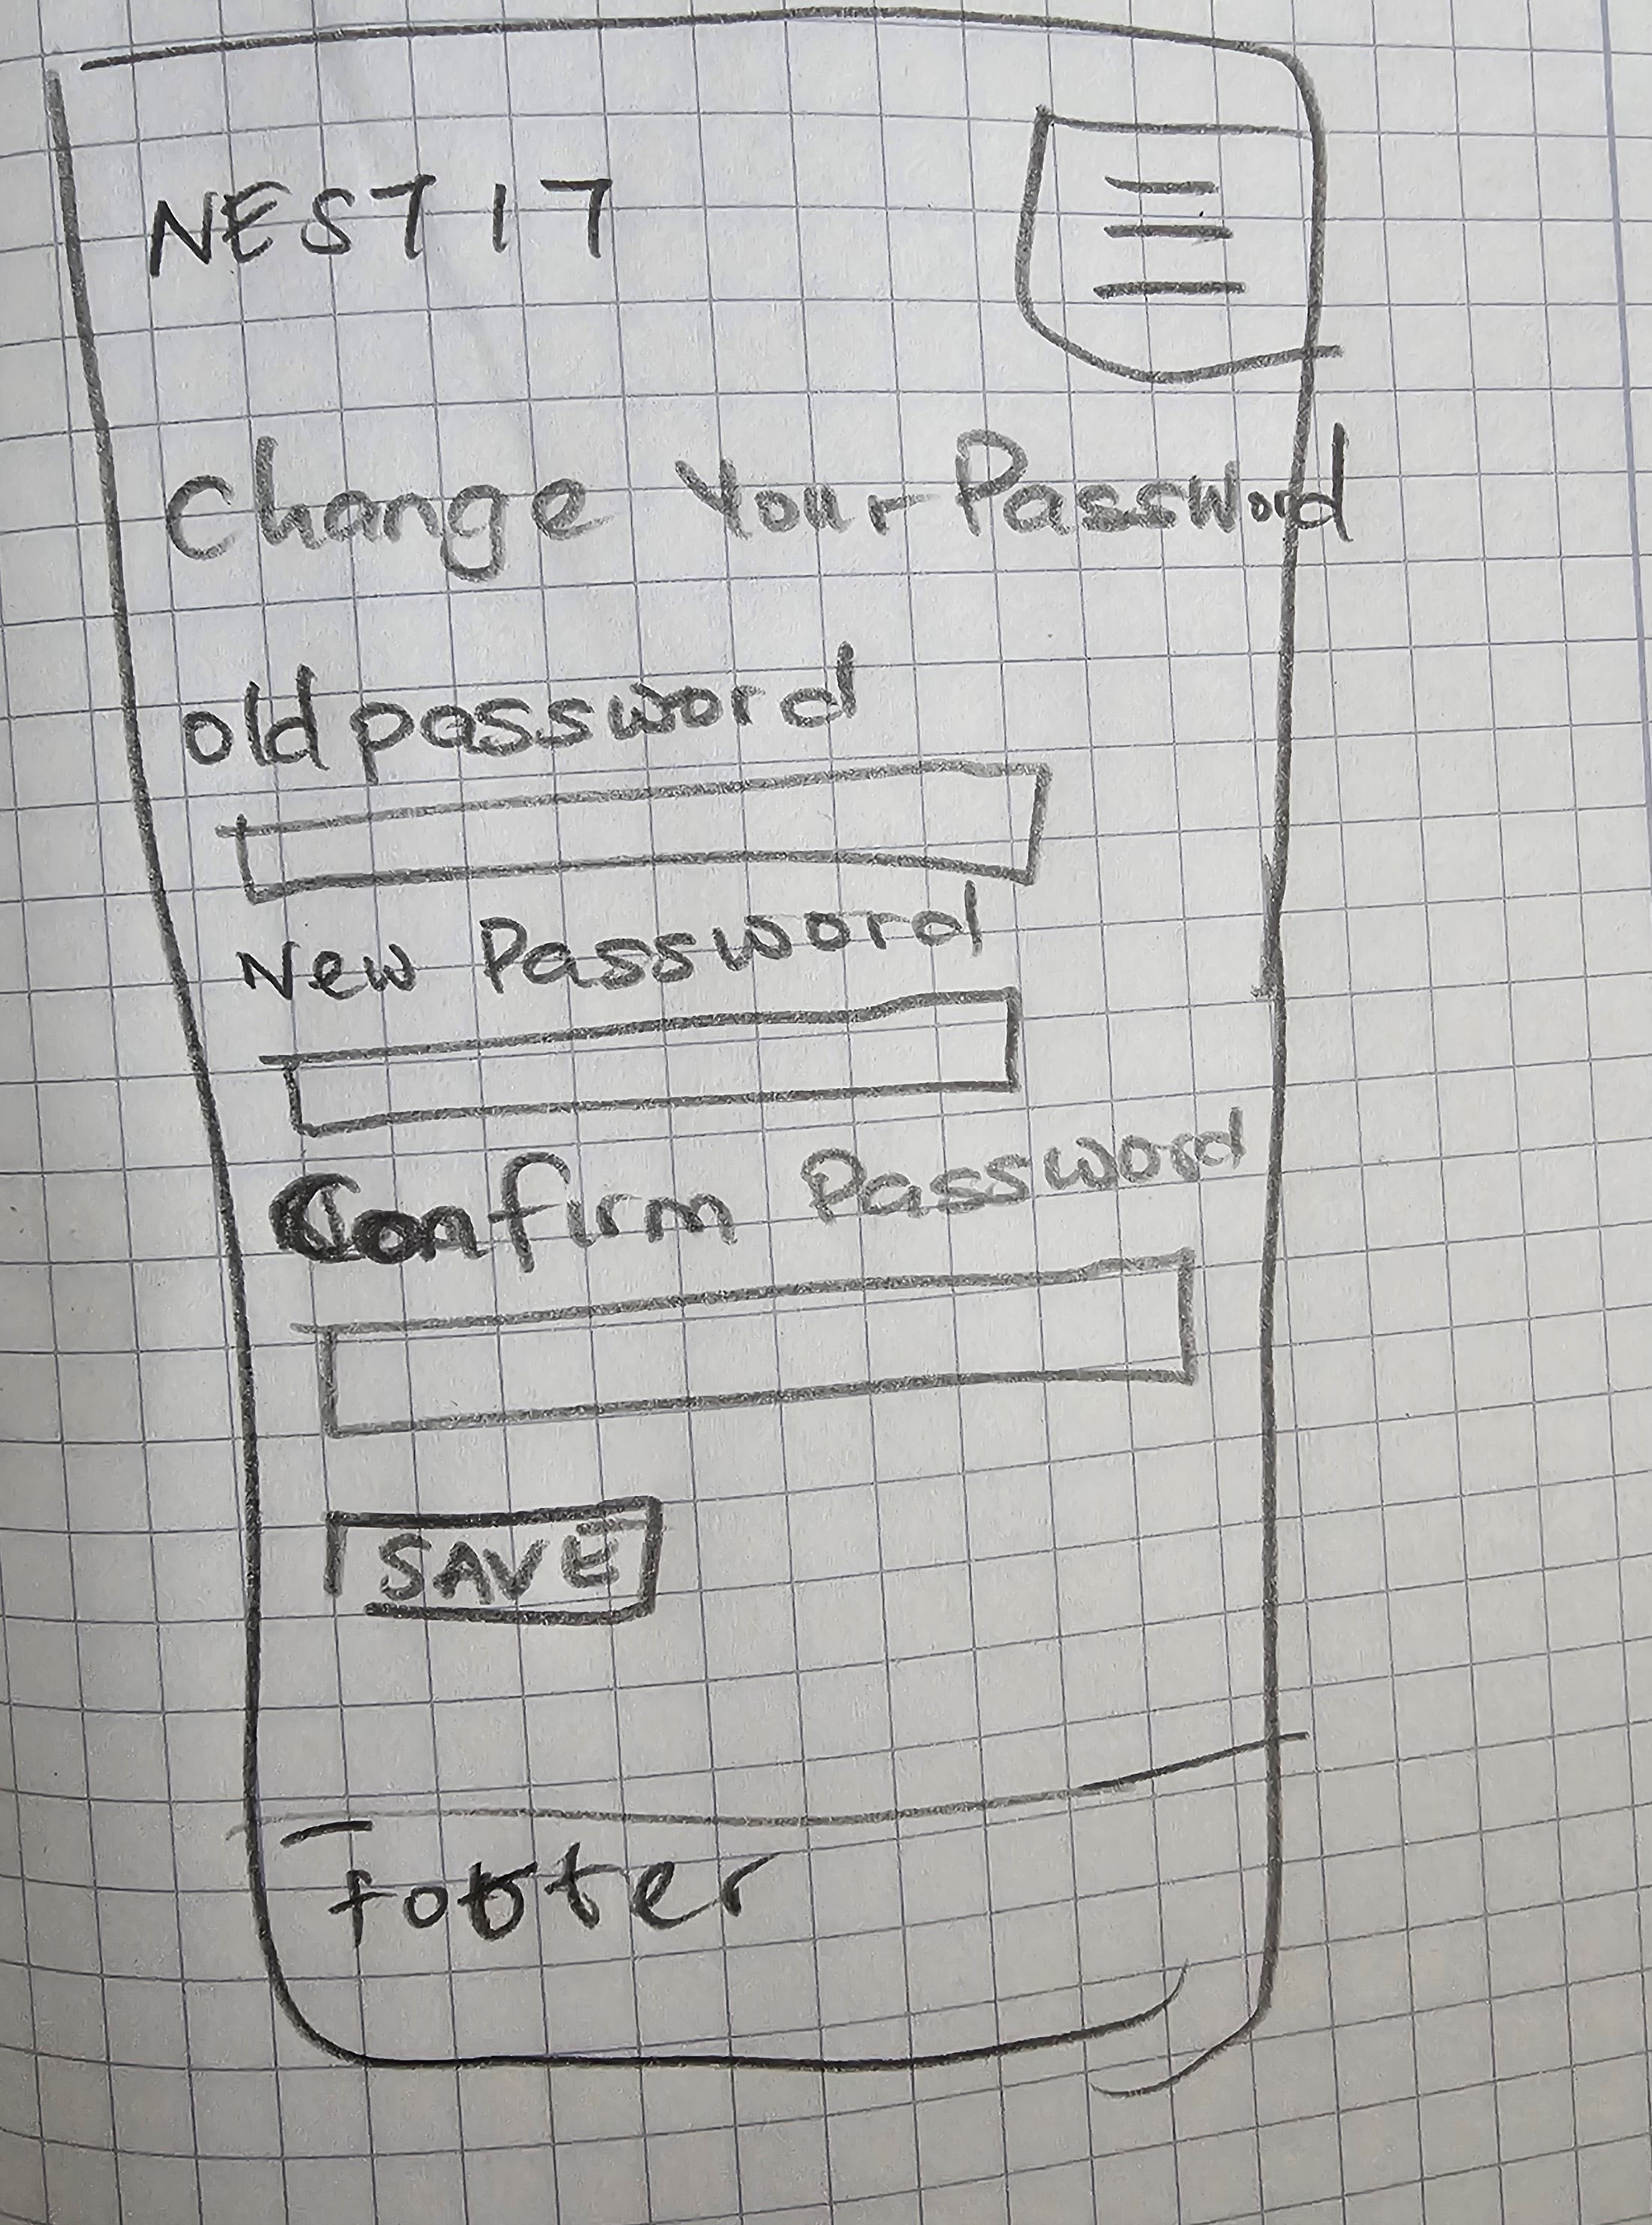 NEST IT
Change Your Password
old password
New Password
Confirm Password
SAVE
Footer